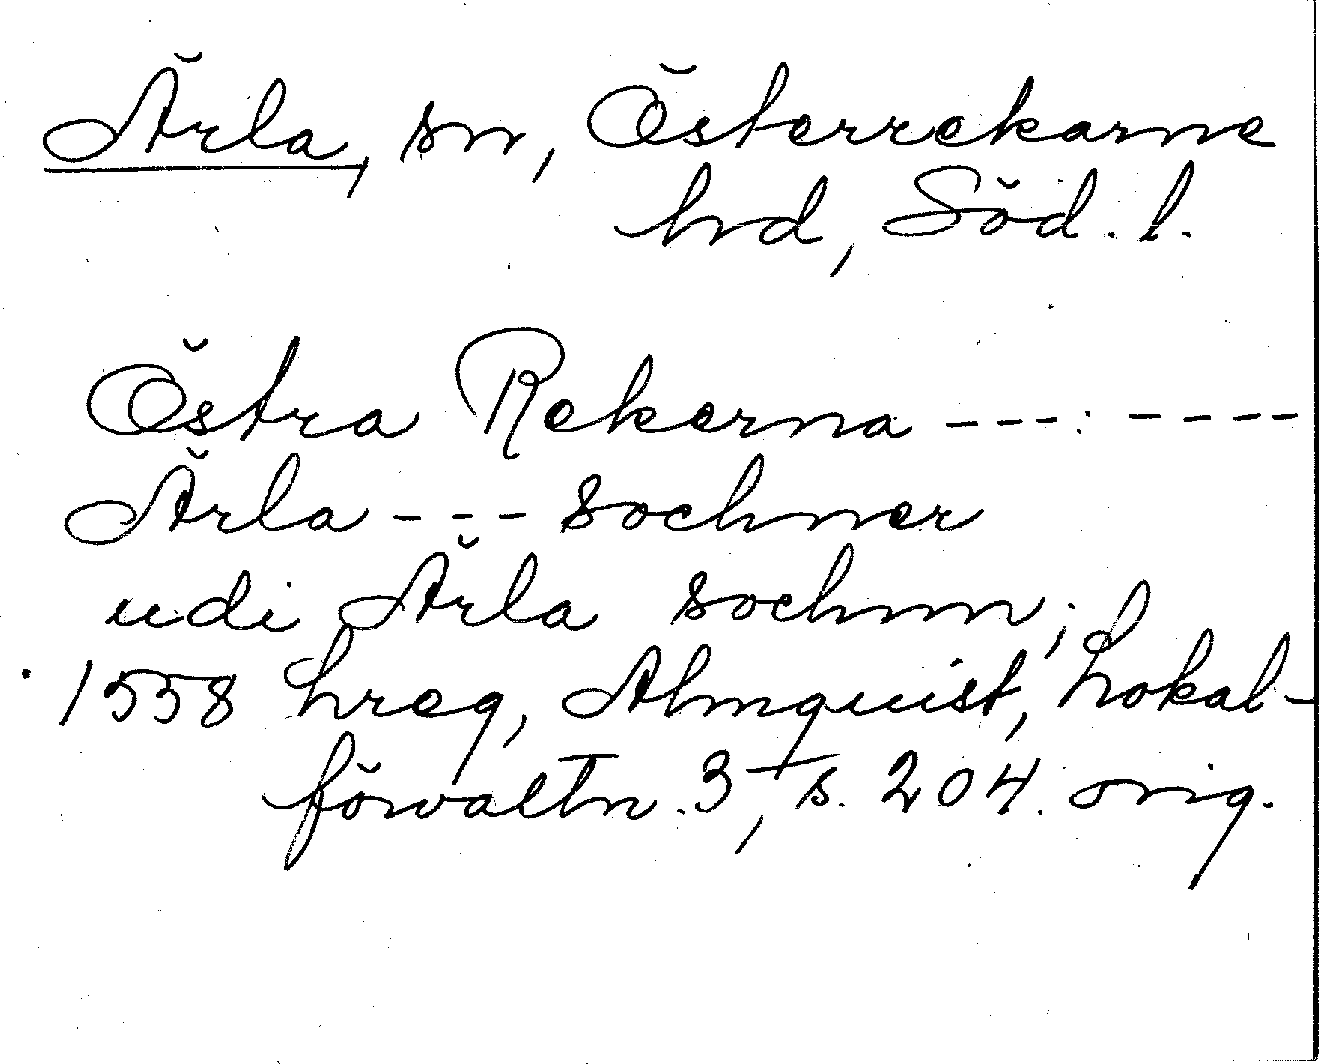 Ärla, sn, Österrekarne
hrd, Söd. l.
Östra Rekerna --- ----
Ärla --- sochner
udi Ärla sochnn;
1558 Lreg, Almquist, Lokal-
förvaltn. 3, s. 204. orig.